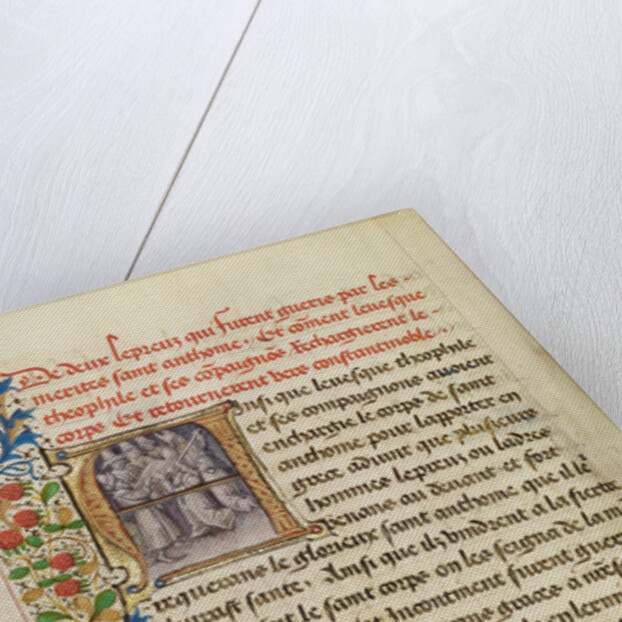 De deux lepreux qui furent gueris par les
merites saint anthoine. Et cōment leuesque
theophile et ses cōpaignōs rechargierent le
corps Et retournerent vers constantinoble.
Ainsi que leuesque theophile
et ses compaignons auoient
enchargie le corps de saint
anthoine pour lapporter en
grece aduint que plusieurs
hommes lepreux ou ladres
venans au deuant et fort
requerans le glorieux saint anthoine que ille
sante. Ainsi que ilz vindrent a la fiertre
le saint corps on les seigna de la
Incontinent furent gueri
graces a nr̄e